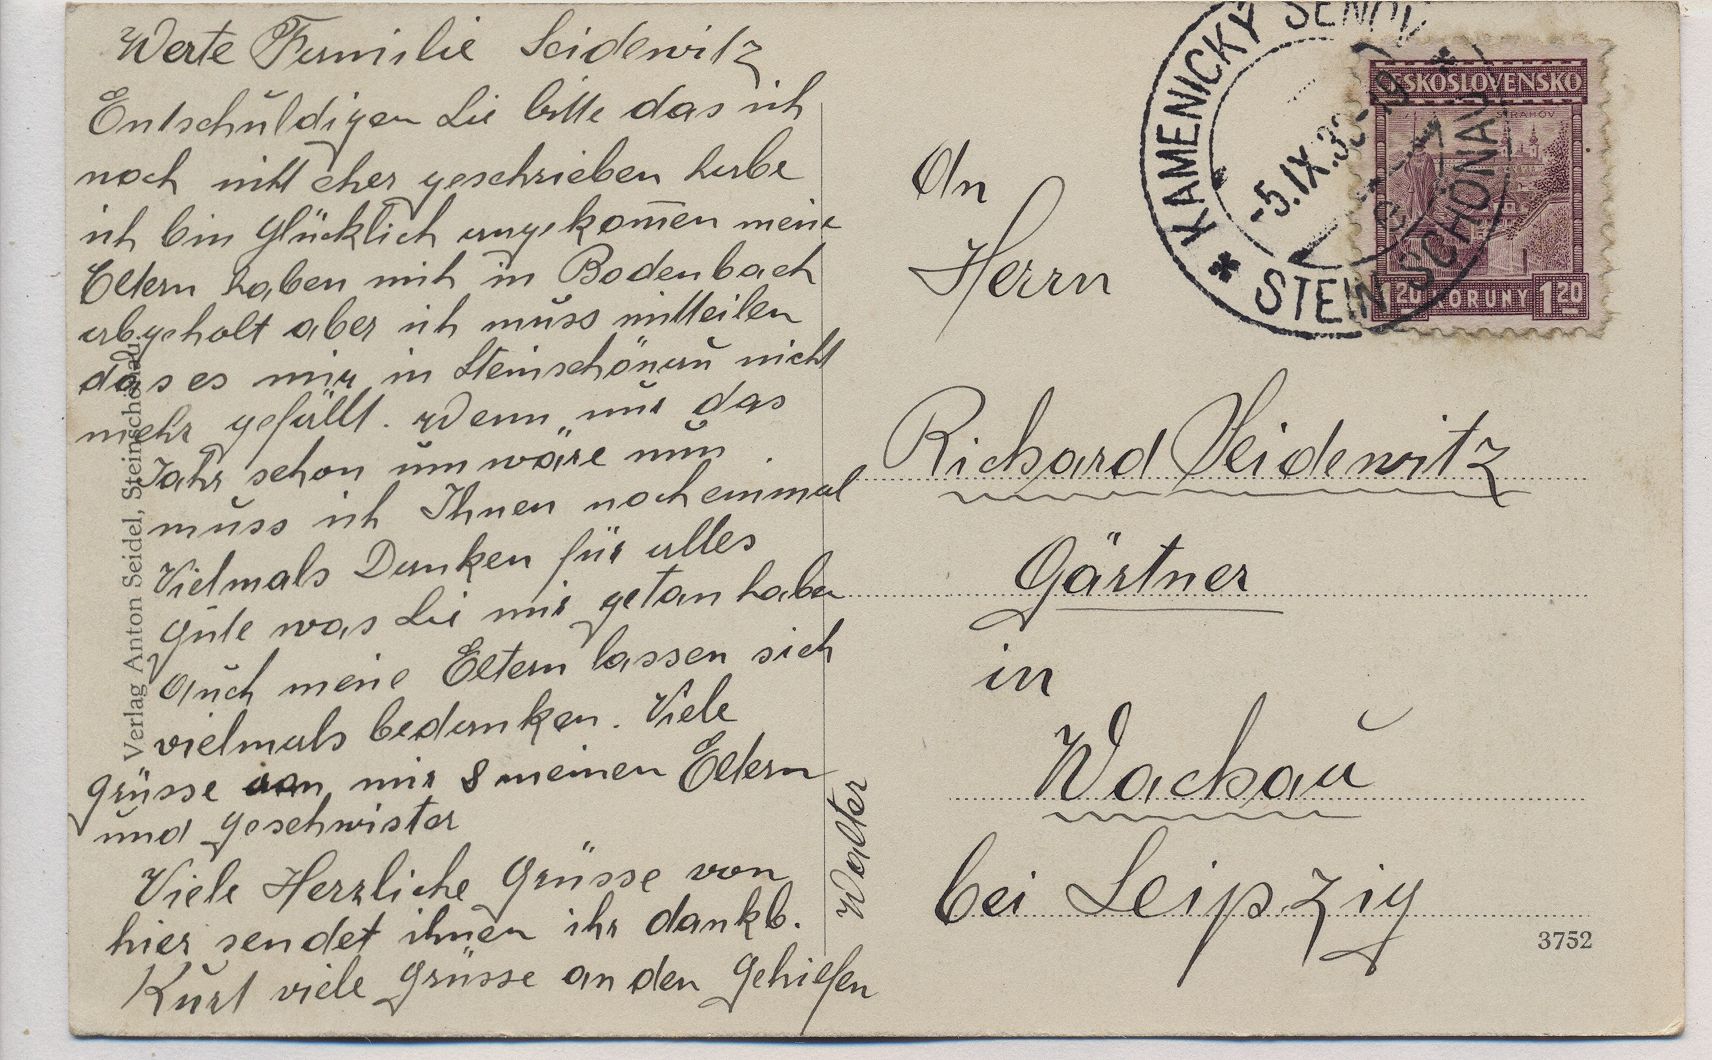 Werte Familie Seidewitz
Entschuldigen Sie bitte das ich
noch nicht eher geschrieben habe
ich bin glücklich angekom̄en meine
Eltern haben mich in Bodenbach
abgeholt aber ich muss mitteilen
das es mir in Steinschönau nicht
mehr gefällt. Wenn nur das
Jahr schon um wäre nun
muss ich Ihnen nocheinmal
Vielmals Danken für alles
gute was Sie mir getan haben
auch meine Eltern lassen sich
vielmals bedanken. Viele
Grüsse von mir & meinen Eltern
und geschwister
Viele Herzliche Grüsse von
hier sendet ihnen ihr dankb.
Kurt viele Grüsse an den Gehielfen
Walter
Verlag Anton Seidel, Steinschönau.
An
Herrn
Richard Seidewitz
Gärtner
in
Wachau
bei Leipzig
3752
KAMENICKÝ ŠENOV
-5.IX.
STEIN SCHÖNAU
ČESKOSLOVENSKO
STRAHOV
1.20 KORUNY 1.20